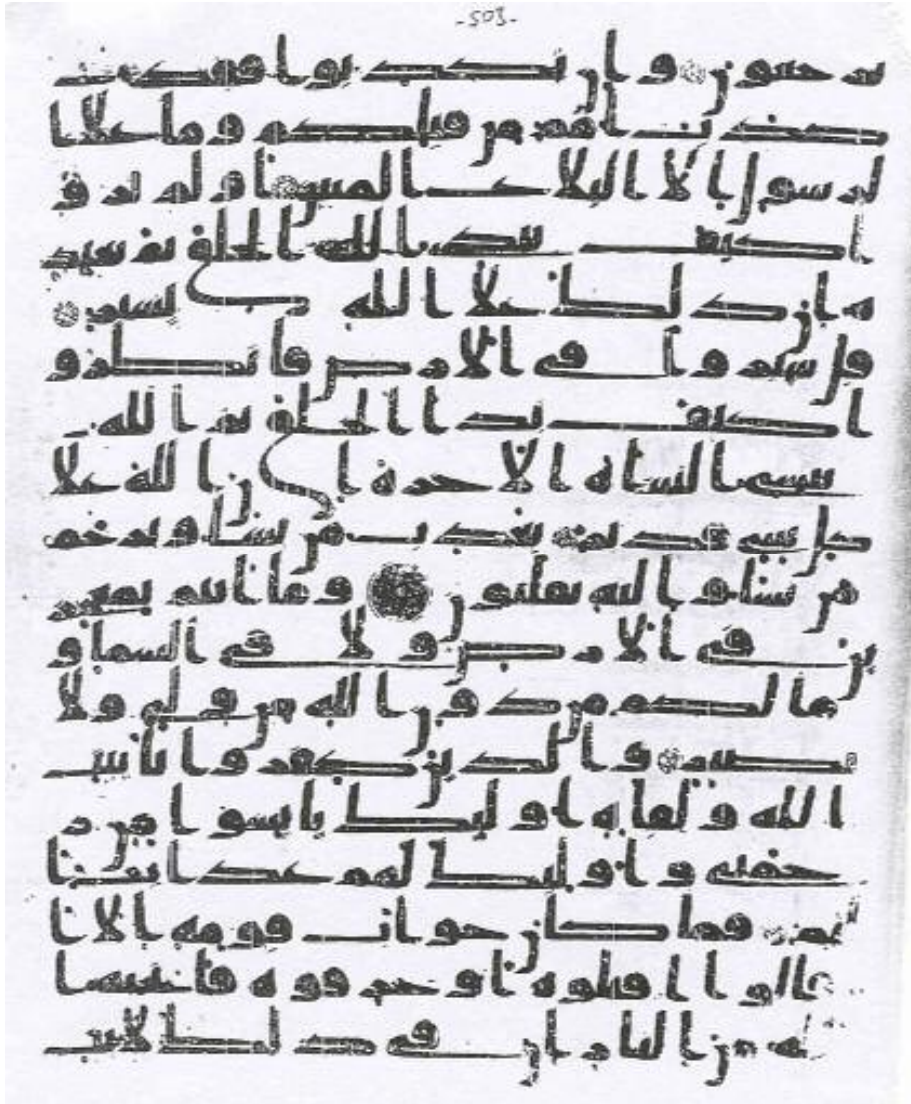 -503-
ه ترجعون وان تكذبوا فقد
كذب امم من قبلكم وما علا ا
لرسول الا البلاغ المبين او لم يرو
ا كيف يبدى الله الخلق ثم يعيد
ه ان ذلك علا الله يسير
قل سيروا في الارض فانظرو
ا كيف بدا الخلق ثم الله
ينشى النشاة الاخرة ان الله علا
كل شى قدير يعذب من يشا ويرحم
من يشا واليه تقلبون وما انتم بمعجز
ين في الارض ولا في السما و
ما لكم من دون الله من ولي ولا
نصير والذين كفروا بايت
الله ولقائه اوليك يئسوا من ر
حمتي واوليك لهم عذاب ا
ليم فما كان جواب قومه الا ان
قالوا اقتلوه او حرقوه فانجيه ا
لله من النار ان في ذلك لايت